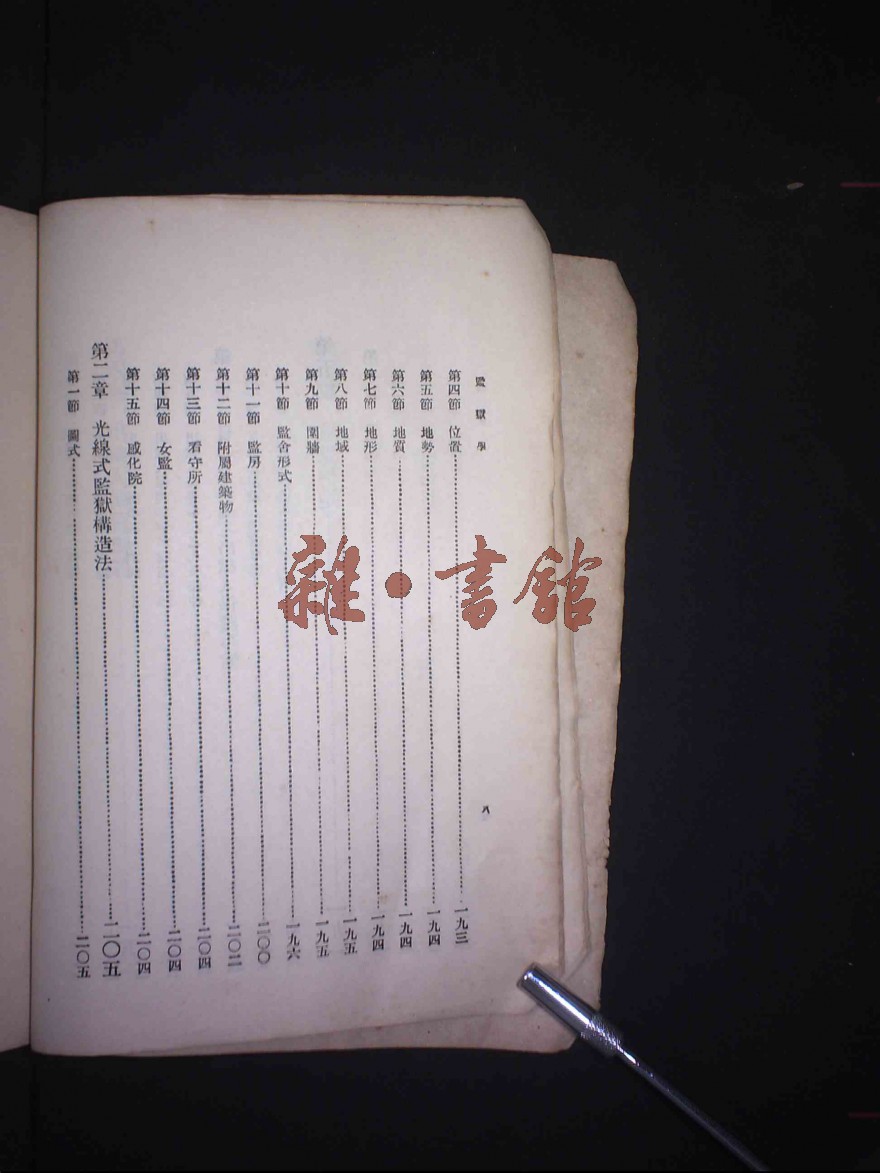 監獄學
八
第四節 位置……一九三
第五節 地勢……一九四
第六節 地質……一九四
第七節 地形……一九四
第八節 地域……一九五
第九節 圍牆……一九五
第十節 監舍形式……一九六
第十一節 監房……二〇〇
第十二節 附屬建築物……二〇二
第十三節 看守所……二〇四
第十四節 女監……二〇四
第十五節 感化院……二〇四
第二章 光線式監獄構造法……二〇五
第一節 圖式……二〇五
雜·書館